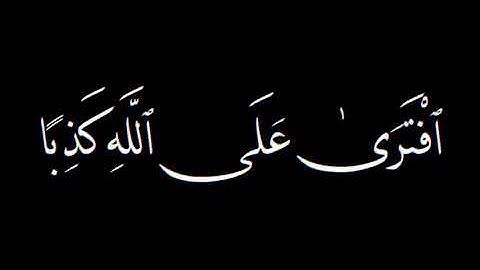 ٱفْتَرَىٰ عَلَى ٱللَّهِ كَذِبًا